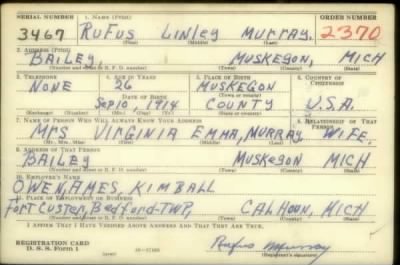 SERIAL NUMBER 1. NAME (Print) ORDER NUMBER
3467 RUFUS LINLEY MURRAY. 2370
(First) (Middle) (Last)
2. ADDRESS (Print)
BAILEY MUSKEGON, MICH
(Number and street or R. F. D. number) (Town) (County) (State)
3. TELEPHONE 4. AGE IN YEARS 5. PLACE OF BIRTH 6. COUNTRY OF CITIZENSHIP
NONE 26 MUSKEGON
DATE OF BIRTH (Town or county)
Sep 10, 1914 COUNTY U.S.A.
(Exchange) (Number) (Mo.) (Day) (Yr.) (State or country)
7. NAME OF PERSON WHO WILL ALWAYS KNOW YOUR ADDRESS 8. RELATIONSHIP OF THAT PERSON
MRS VIRGINIA EMMA, MURRAY WIFE,
(Mr., Mrs., Miss) (First) (Middle) (Last)
9. ADDRESS OF THAT PERSON
BAILEY MUSKEGON MICH
(Number and street or R. F. D. number) (Town) (County) (State)
10. EMPLOYER'S NAME
OWEN, AMES, KIMBALL
11. PLACE OF EMPLOYMENT OR BUSINESS
Fort Custer, Bedford-TWP, CALHOUN, MICH
(Number and street or R. F. D. number) (Town) (County) (State)
I AFFIRM THAT I HAVE VERIFIED ABOVE ANSWERS AND THAT THEY ARE TRUE.
REGISTRATION CARD
D. S. S. Form 1 (over) Rufus Murray
(Registrant's signature)